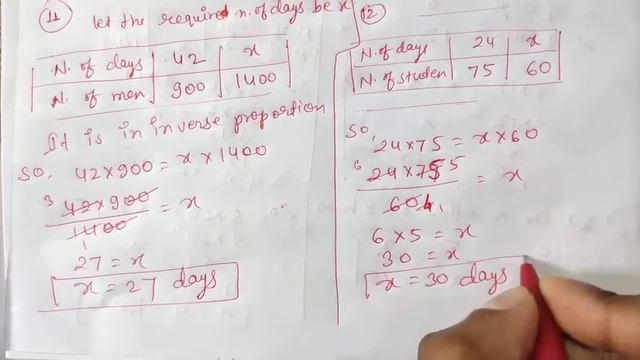 11 let the required n. of days be x
N. of days 42 x
N. of men 900 1400
It is in inverse proportion
so, 42×900 = x×1400
3 42×900 = x
1400
1
27 = x
x = 27 days
12
N. of days 24 x
N. of studen 75 60
so,
24×75 = x×60
6 24×75 5 = x
60 4 1
6×5 = x
30 = x
x = 30 days